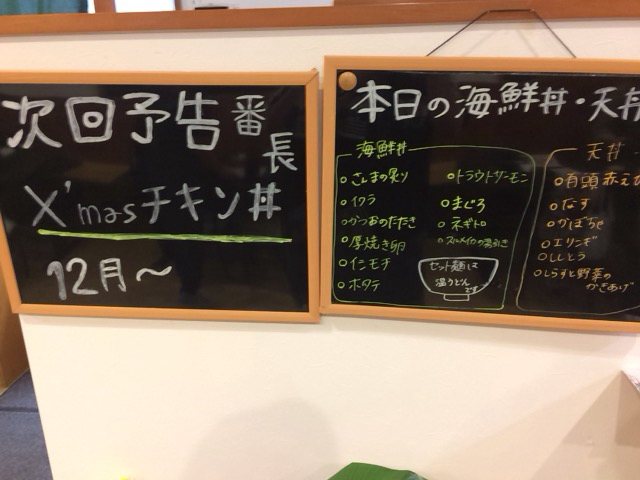 次回予告番長
X'masチキン丼
12月～
本日の海鮮丼・天丼
海鮮丼
○さんまの炙り
○イクラ
○かつおのたたき
○厚焼き卵
○インモチ
○ホタテ
○トラウトサーモン
○まぐろ
○ネギトロ
○スルメイカの湯引き
セット麺は
温うどん
です
天丼
○有頭赤えび
○なす
○かぼちゃ
○エリンギ
○ししとう
○しらすと野菜の
かきあげ